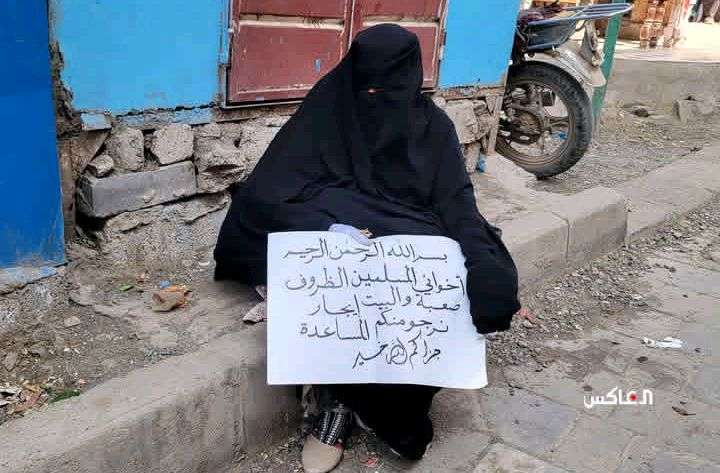 بسم الله الرحمن الرحيم
اخواني المسلمين الظروف
صعبة والبيت إيجار
نرجو منكم المساعدة
جزاكم الله خير
العاكس